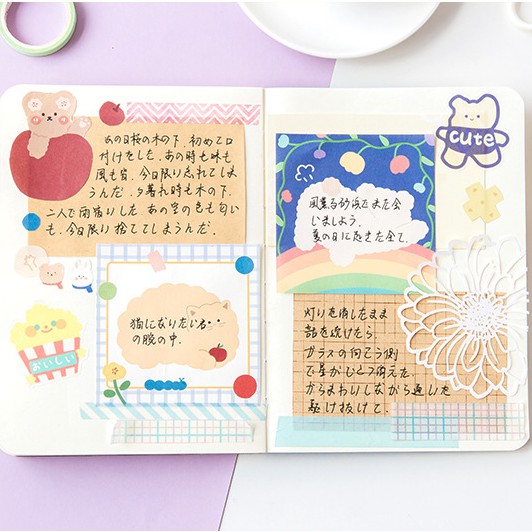 あの日桜の木の下、初めて口
付けをした。あの時も味も
風も皆、今日限り忘れてしま
うんだ。夕暮れ時も木の下、
二人で雨宿りした。あの空の色も匂い
も、今日限り捨ててしまうんだ。
おいしい
猫になりたい君
の腕の中、
cute
風薫る砂浜でまた会
いましょう。
夏の日に起きた全て、
灯りを消したまま
話を続けたら
ガラスの向こう側
で星がひとつ消えた
からまわりしながら通いた
駆け抜けて、